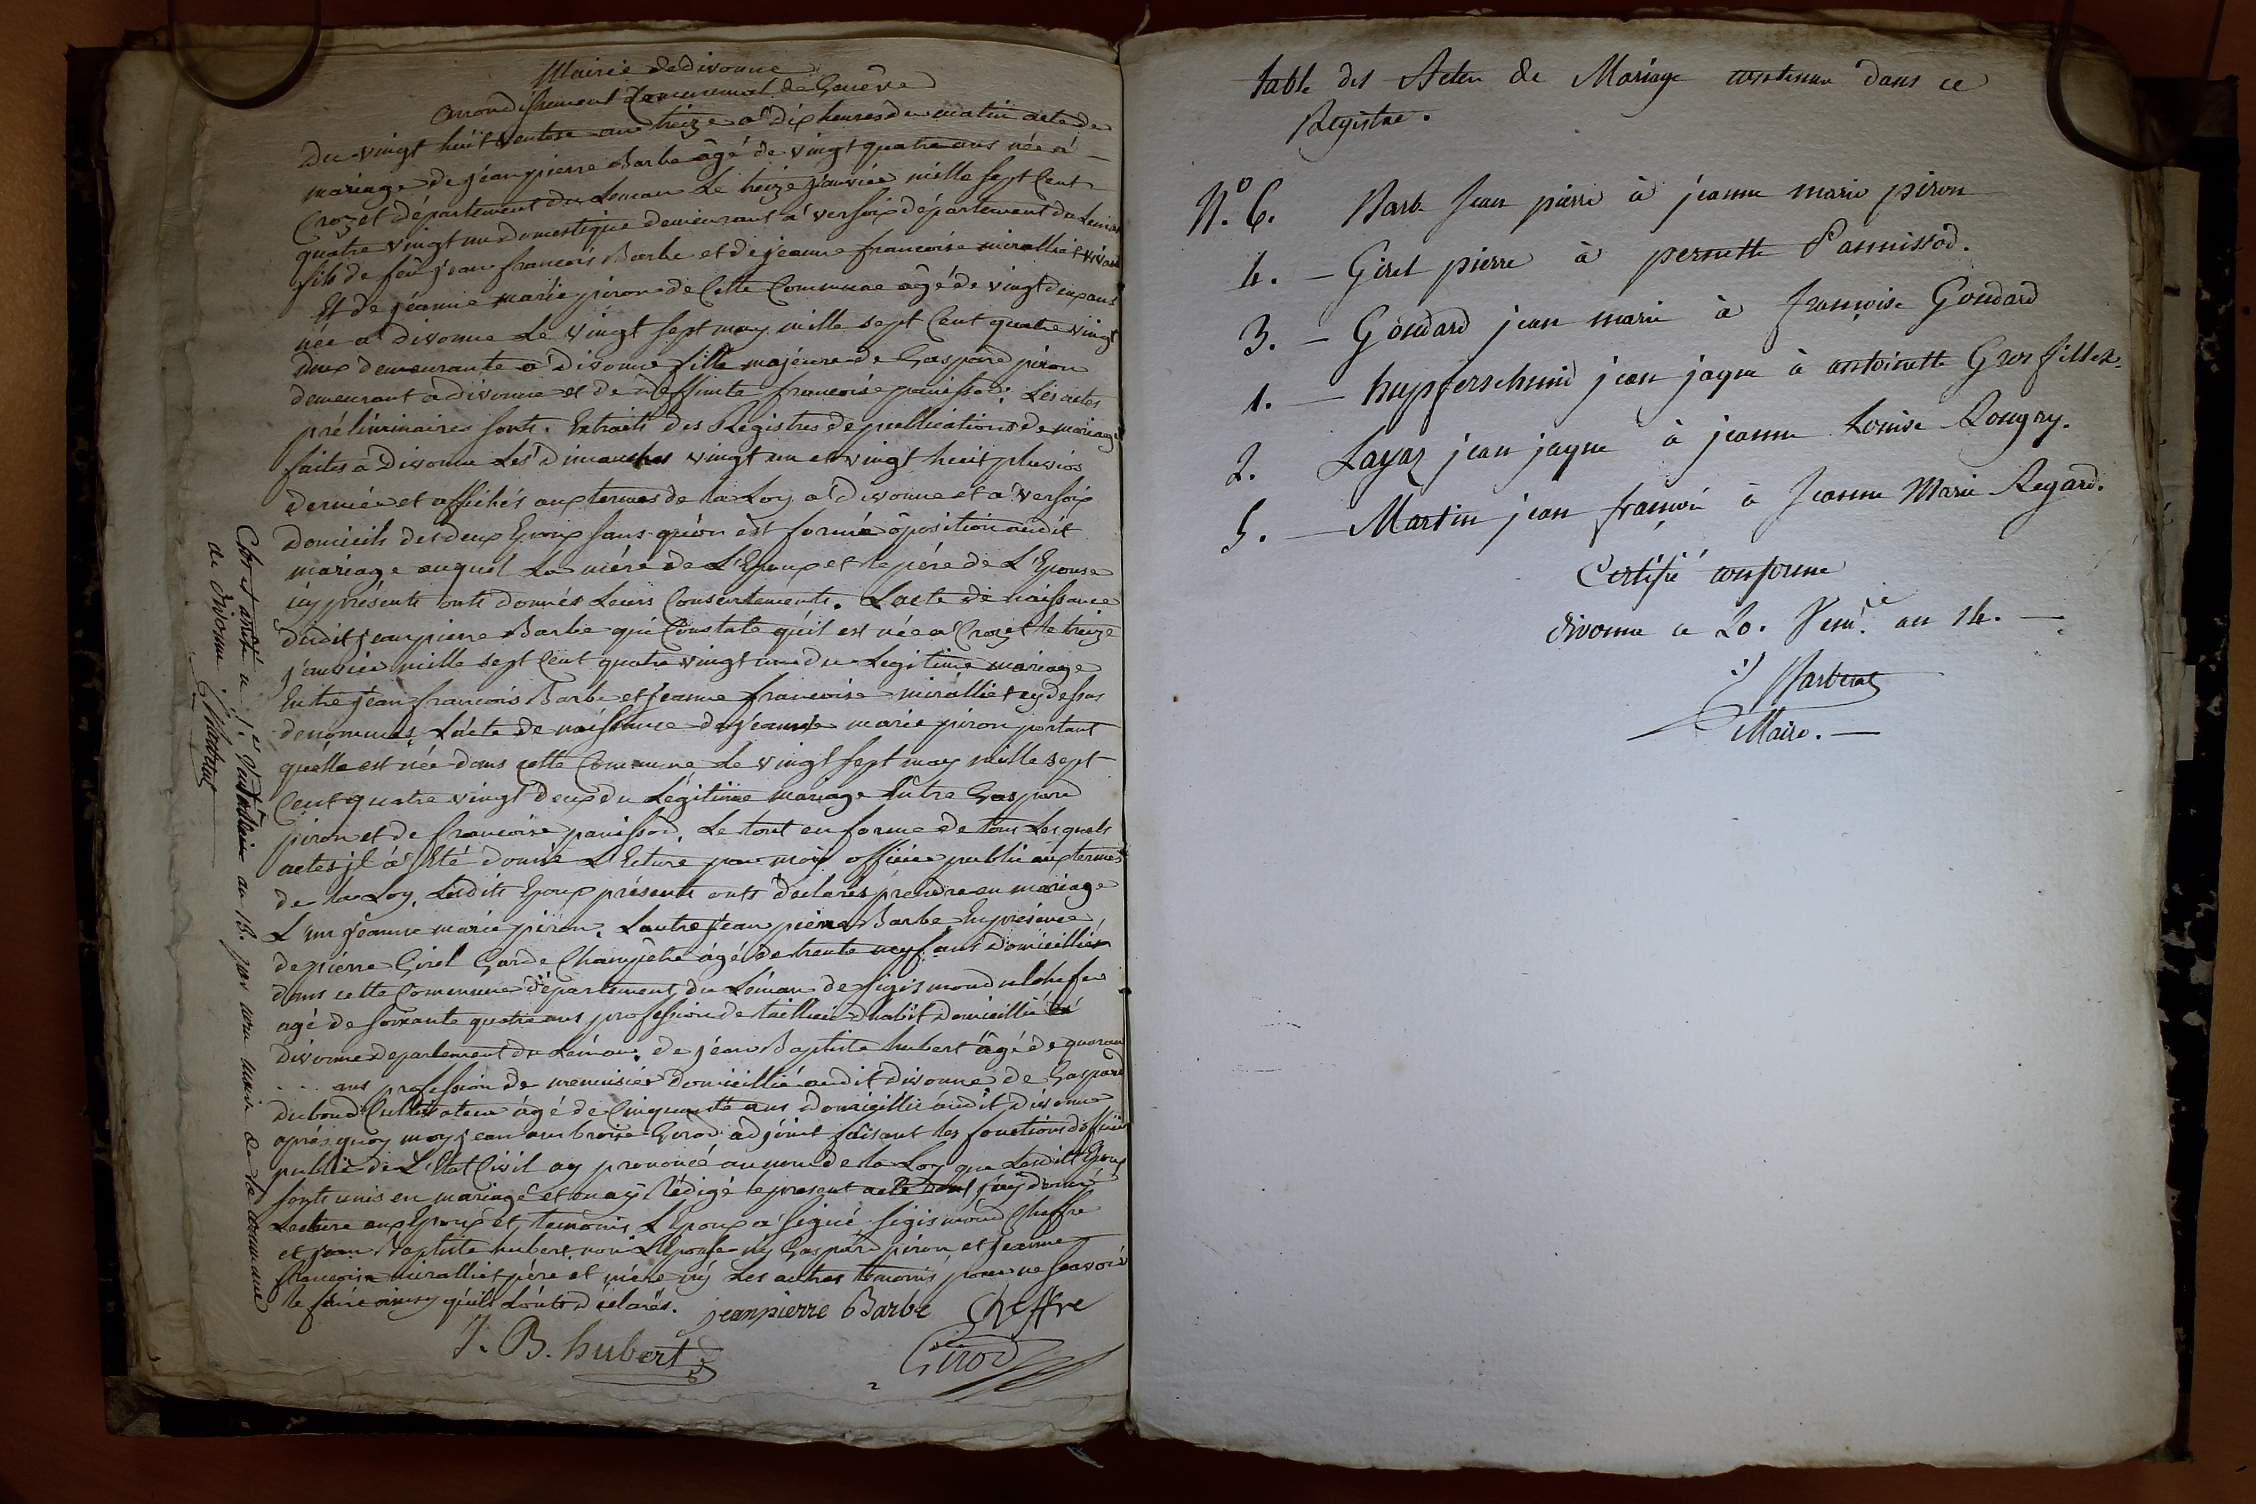 Mairie de divonne
arrondissement Communal de Genêve
Du vingt huit ventose an treize a dix heures du matin acte de
mariage de jéan pierre Barbe âgé de vingt quatre ans née a
Crozet département du Leman Le treize janvier mille sept Cent
quatre vingt un domestique demeurant a versoix département du Leman
fils de feu jean francois Barbe et de jeanne francoise miralliet vivante
Et de jéanne marie piron de Cette Commune âgé de vingt deux ans
née a divonne Le vingt sept may mille sept Cent quatre vingt
deux demeurante a divonne fille majeure de Gaspard piron
demeurant a divonne et de deffunte francoise panissod. Les actes
préliminaires sont. Extraits des Registres de publications de mariage
faites a Divonne Les Dimanches vingt un et vingt huit pluvios
dernier et affichés aux termes de la Loy a divonne et a versoix
domicils des deux Epoux sans quéon est formée oposition audit
mariage auquel La mére de L'Epoux et le pére de L'Epouse
icy présents onts donnés Leurs Consentements. L'acte de naissance
dudit jean pierre Barbe qui Constate quéil est née a Crozet le treize
janvier mille sept Cent quatre vingt un du Legitime mariage
Entre jéan francois Barbe et jeanne francoise miralliet cy dessus
denommés, L'acte de naissance de jeanne marie piron portant
quélle est née dans cette Commune Le vingt sept may mille sept
Cent quatre vingt deux du Légitime mariage Entre Gaspard
piron et de francoise panissod. Le tout en forme de tous Les quels
actes jl a Eté donné L'Ecture par moy officier public aux termes
de la Loy, Lesdits Epoux présents onts déclarés prendre en mariage
L'un jéanne marie piron, L'autre jean pierre Barbe En présence
de pierre Girel Garde Champêtre âgé de trente neuf ans domicillié
dans cette Commune département du Léman de sigismond
agé de soixante quatre ans profession de tailleur d'habit domicillié a
Divonne departement du Léman, de jéan Baptiste hubert âgé de quaran
... ans profession de menuisier domicillié audit divonne de Gaspard
Dubond Cultivateur âgé de Cinquante ans domicillié audit Divonne
aprés quoy moy jean ambroise Girod adjoint faisant les fonctions dofficier
public de L'Etat Civil ay prononcé au nom de la Loy que Lesdits Epoux
sonts unis en mariage et en ay Rédigé le present acte dont j'ay donné
Lecture aux Epoux et temoins L'Epoux a signé, sigismond Cheffre
et jean Baptiste hubert non L'Epouse ny Gaspard piron et jeanne
francoise miralliet pére et mére ny Les autres temoins pour ne scavoir
le faire ainsy quéils L'onts déclarés.
jeanpierre Barbe Cheffre
J. B. hubert
Girod
Clos et arrêté ce 1.er Vendémiaire an 13. par nous maire de la commune
de divonne.
table des Actes de Mariage contenu dans ce
Registre.
N.º 6. Barbe Jean pierre à jeanne marie piron
4. — Girel pierre à pernette Pannissod.
3. — Goudard jean marie à françoise Goudard
1. — hupferschmid jean jaque à antoinette Grosfillex.
2. Layaz jean jaque à jeanne Louise Rougny.
5. — Martin jean françois à Jeanne Marie Regard.
Certifié conforme
divonne ce 20. Vem.re an 14. —
Maire. —